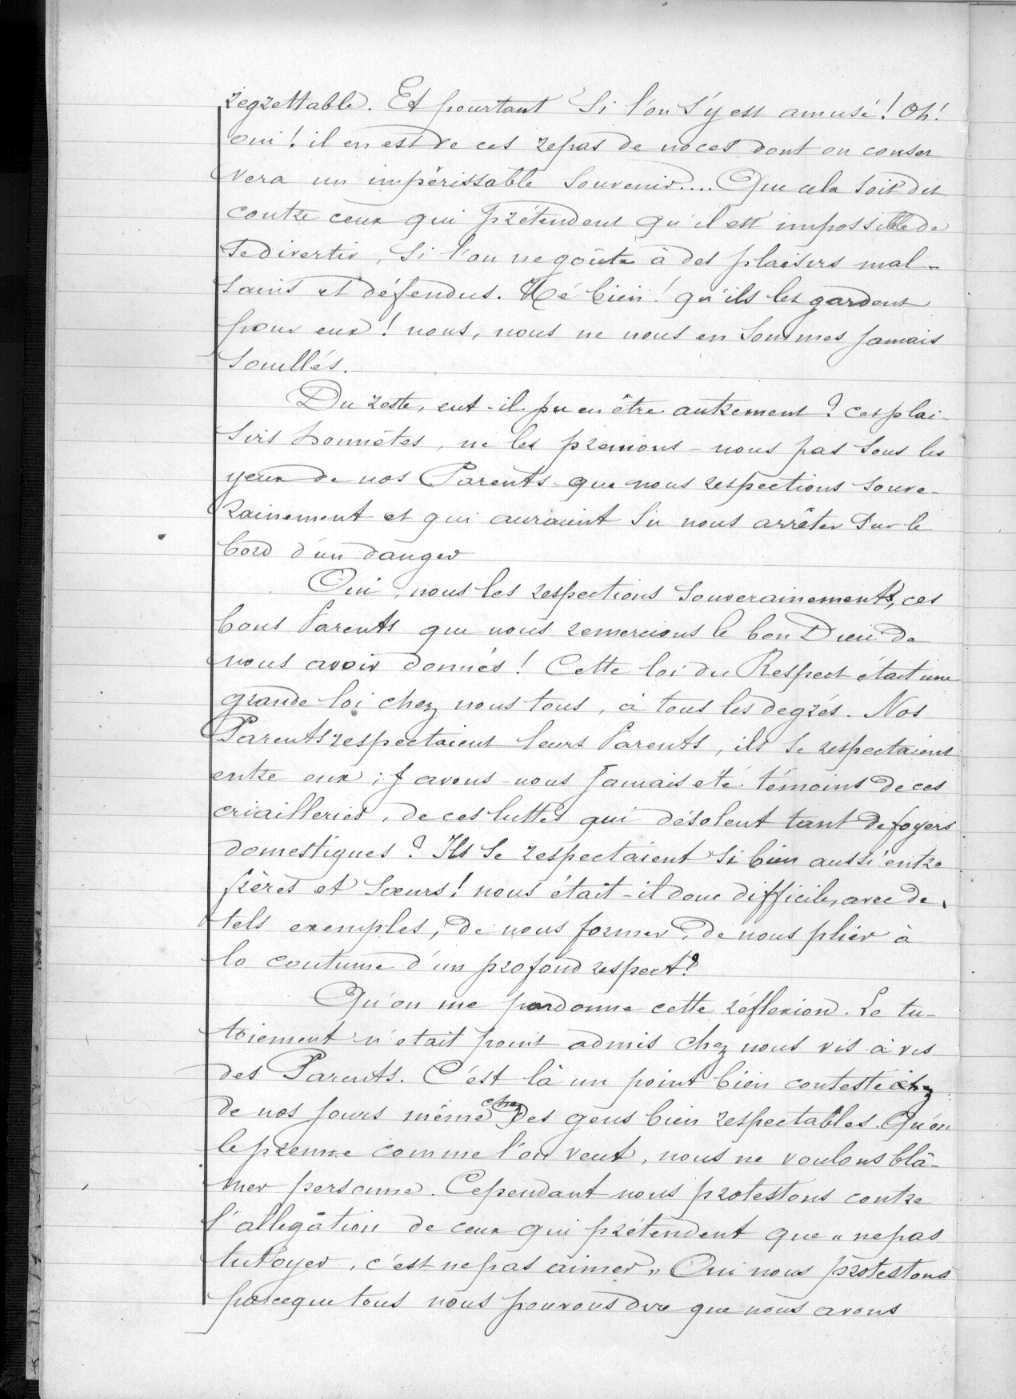 regrettable. Et pourtant si l'on s'y est amusé ! Oh !
oui ! il en est de ces repas de noces dont on conser
vera un impérissable souvenir.... Que cela soit dit
contre ceux qui prétendent qu'il est impossible de
se divertir, si l'on ne goûte à des plaisirs mal-
sains et défendus. Hé bien ! qu'ils les gardent
pour eux ! nous, nous ne nous en sommes jamais
souillés.
Du reste, eut-il pu en être autrement ? ces plai-
sirs honnêtes, ne les prenions-nous pas sous les
yeux de nos Parents que nous respections souve-
rainement et qui auraient su nous arrêter sur le
bord d'un danger
Oui, nous les respections souverainement, ces
bons Parents que nous remercions le bon Dieu de
nous avoir donnés ! Cette loi du Respect était une
grande loi chez nous tous, à tous les degrés. Nos
Parents respectaient leurs Parents, ils se respectaient
entre eux ; avons-nous jamais été témoins de ces
criailleries, de ces luttes qui désolent tant de foyers
domestiques ? Ils se respectaient si bien aussi entre
frères et sœurs ! nous était-il donc difficile, avec de
tels exemples, de nous former, de nous plier à
la coutume d'un profond respect ?
Qu'on me pardonne cette réflexion. Le tu-
toiement n'était point admis chez nous vis à vis
des Parents. C'est là un point bien contesté
de nos jours même chez des gens bien respectables. Qu'on
le prenne comme l'on veut, nous ne voulons blâ-
mer personne. Cependant nous protestons contre
l'allégation de ceux qui prétendent que « ne pas
tutoyer, c'est ne pas aimer » Oui nous protestons
parceque tous nous pouvons dire que nous avons